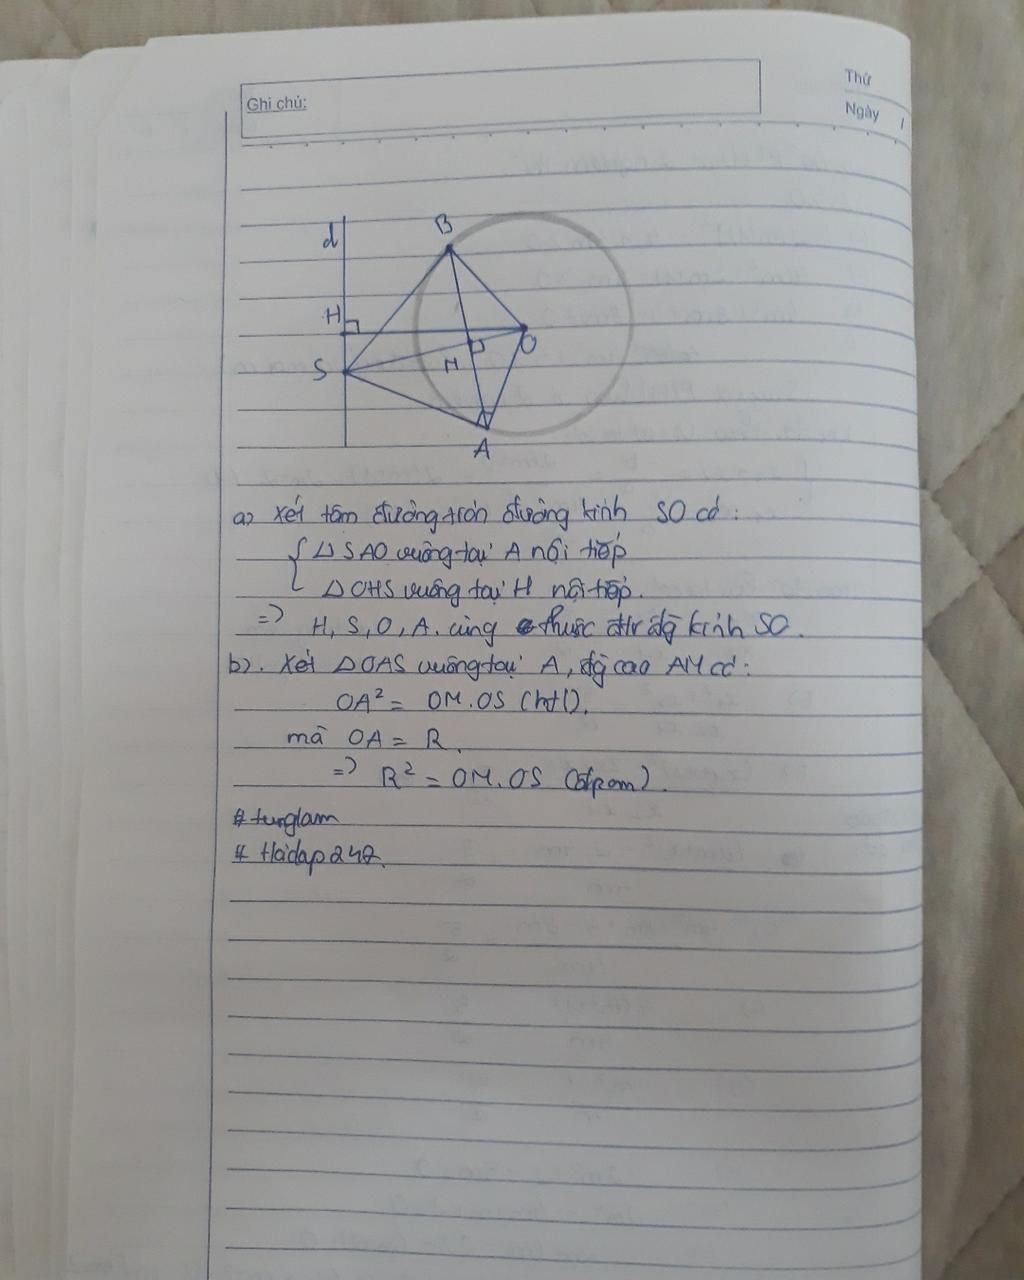 Ghi chú:
Thứ
Ngày /
d
B
H
O
S
M
A
a) Xét tâm đường tròn đường kính SO có:
{ Δ SAO vuông tại A nội tiếp
Δ OHS vuông tại H nội tiếp.
=> H, S, O, A. cùng thuộc đtr đg kính SO.
b). Xét Δ OAS vuông tại A, đg cao AM có:
OA² = OM.OS (htl).
mà OA = R.
=> R² = OM.OS (đpcm).
# tunglam
# Hoidap247.